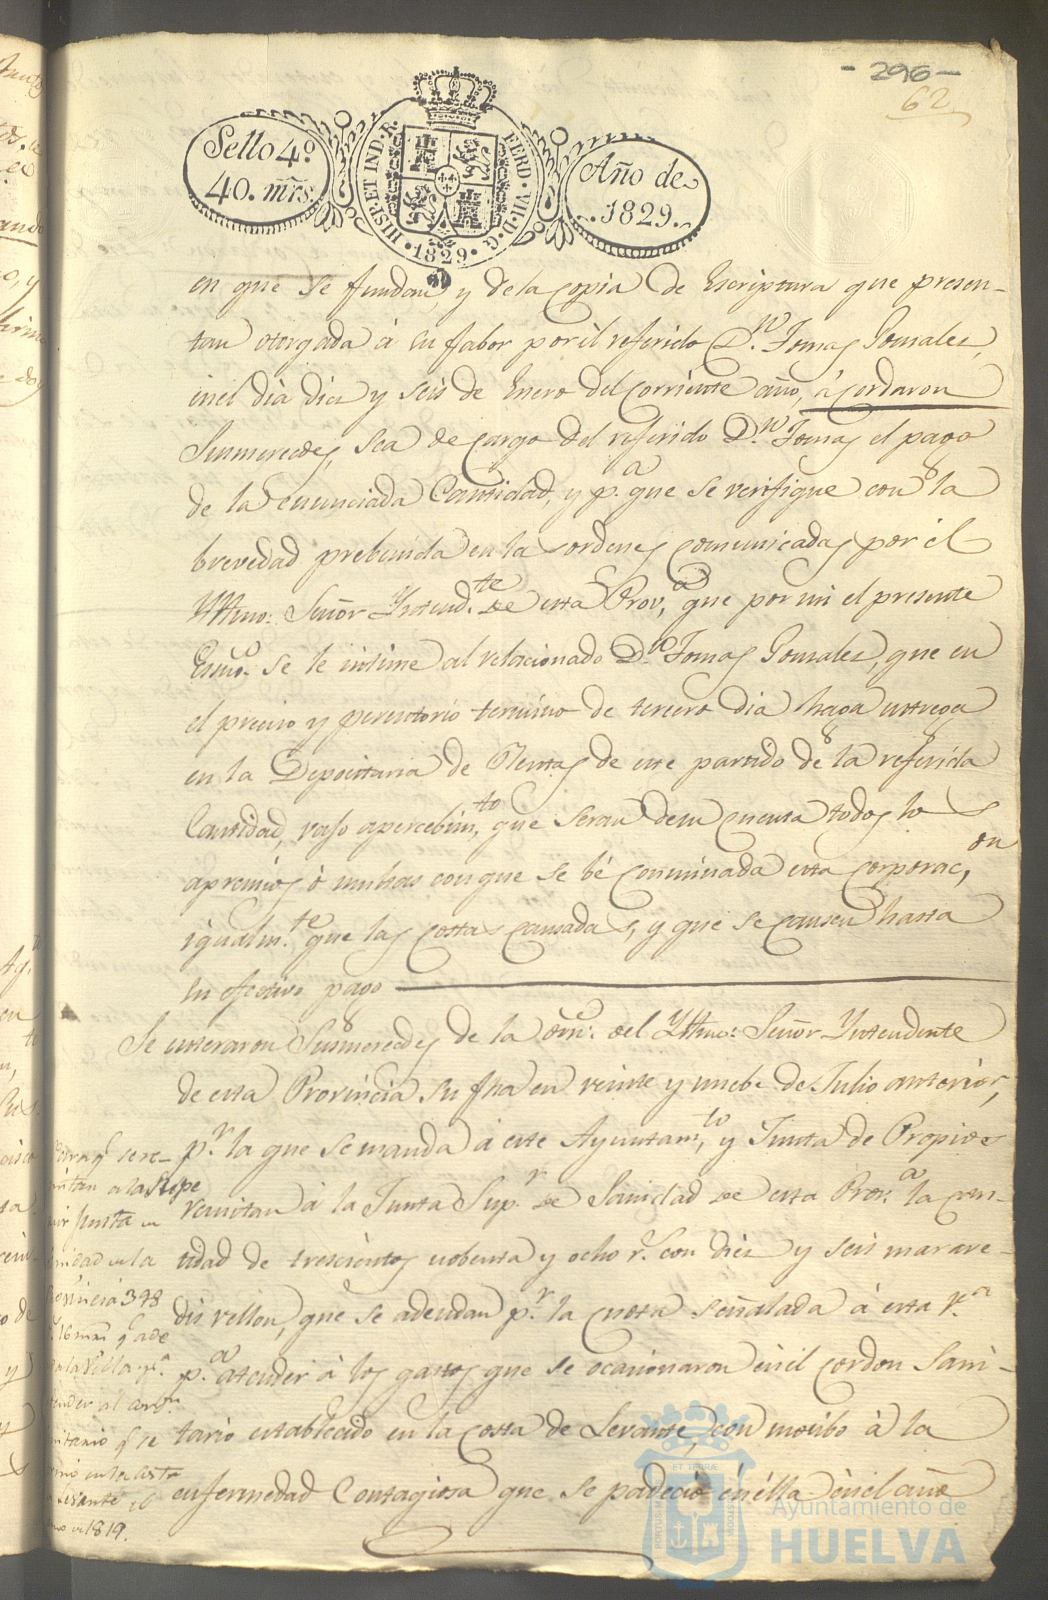 - 296 -
62
Sello 4º
40. mrs.
HISP. ET IND. R.
FERD. VII. D. G.
1829
Año de
1829.
en que se fundan, y de la copia de Escriptura que presen-
tan otorgada á su fabor por il referido D.n Tomas Gonsales,
en el dia dies y seis de Enero del corriente año, acordaron
Susmercedes, sea de cargo del referido D.n Tomas el pago
de la enunciada Cantidad, y p.a que se verifique con la
brevedad prebenida en las ordenes comunicadas por el
Yltmo: Señor Yntend.te de esta Prov.a que por mi el presente
Essno. se le intime al relacionado D.n Tomas Gonsales, que en
el preciso y perentorio termino de tercero dia haga entrega
en la Depocitaria de Rentas de este partido de la referida
Cantidad, vajo apercebim.to que seran de su cuenta todos los
apremios ó multas con que se bé conminada esta corporac.on
igualm.te que las costas causadas, y que se causen hasta
su efectivo pago
Se enteraron Susmercedes de la orn. del Yltmo: Señor Yntendente
de esta Provincia su fha en veinte y nuebe de Julio anterior,
p.r la que se manda á este Ayuntam.to y Junta de Propios
remitan á la Junta Sup.r de Sanidad de esta Prov.a la can-
tidad de trescientos nobenta y ocho r.s con dies y seis marave-
dis vellon, que se adeudan p.r la cuota señalada á esta v.a
p.a atender á los gastos que se ocacionaron en el cordon Sani-
tario establecido en la costa de Levante, con motibo á la
enfermedad Contagiosa que se padeció en élla én el año
q.e se re-
mitan a la Supe
rior Junta de
Sanidad de la
Provincia 398
r.s 16 mrs q.e ade
da la Villa p.a
atender al cord.n
sanitario q.e se
en la costa
de Levante el
año de 1819.
Ayuntamiento de
HUELVA